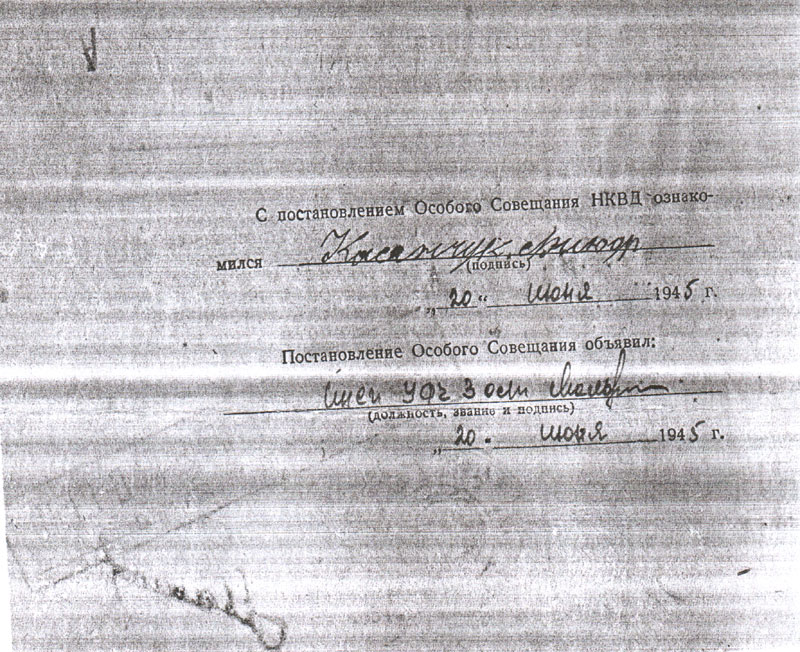 С постановлением Особого Совещания НКВД ознако-
мился Касанчук
(подпись)
„20“ июня 1945 г.
Постановление Особого Совещания объявил:
УРЧ 3
(должность, звание и подпись)
„20. июня 1945 г.